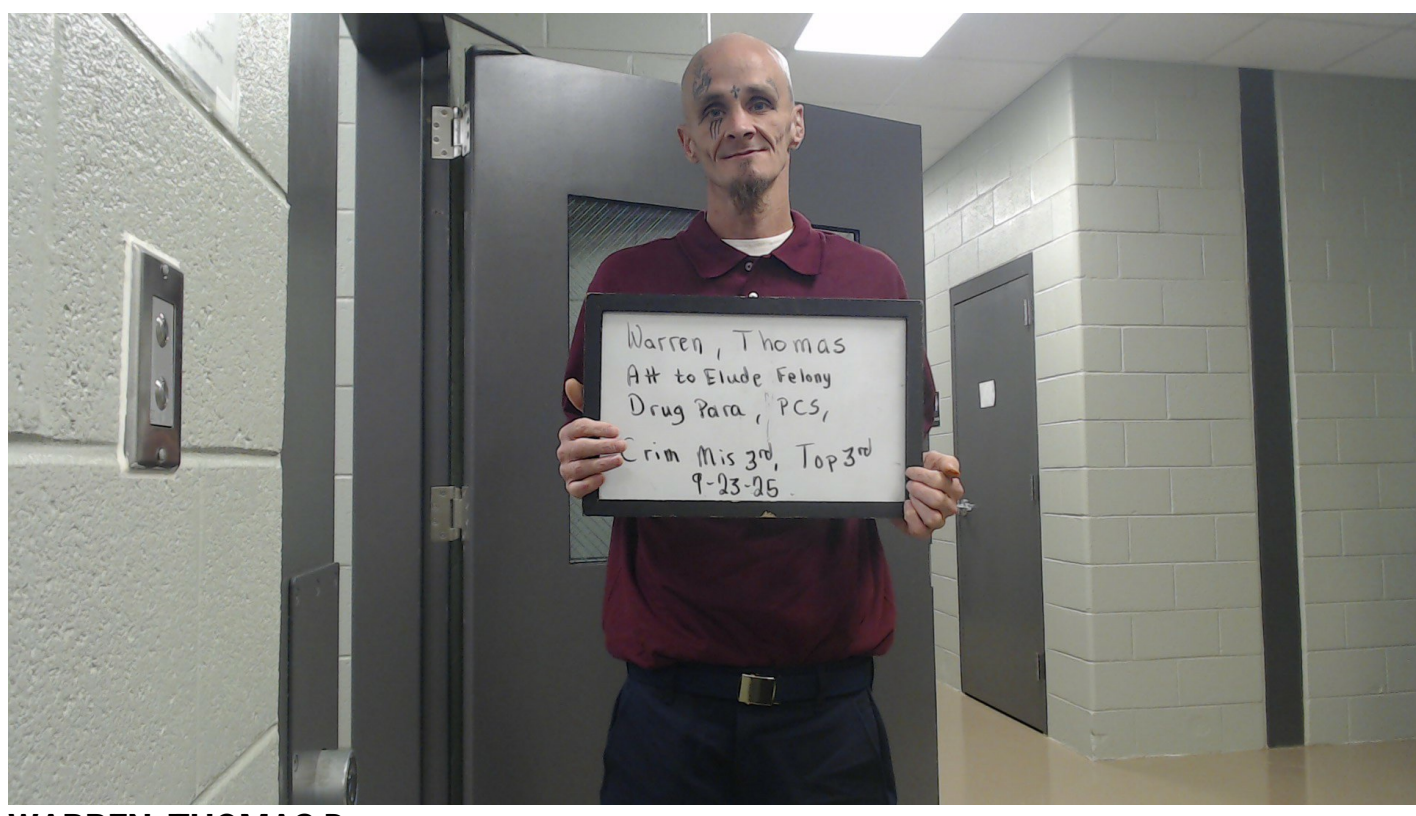 Warren, Thomas
Att to Elude Felony
Drug Para, PCS,
Crim Mis 3rd, Top 3rd
9-23-25
WARREN, THOMAS